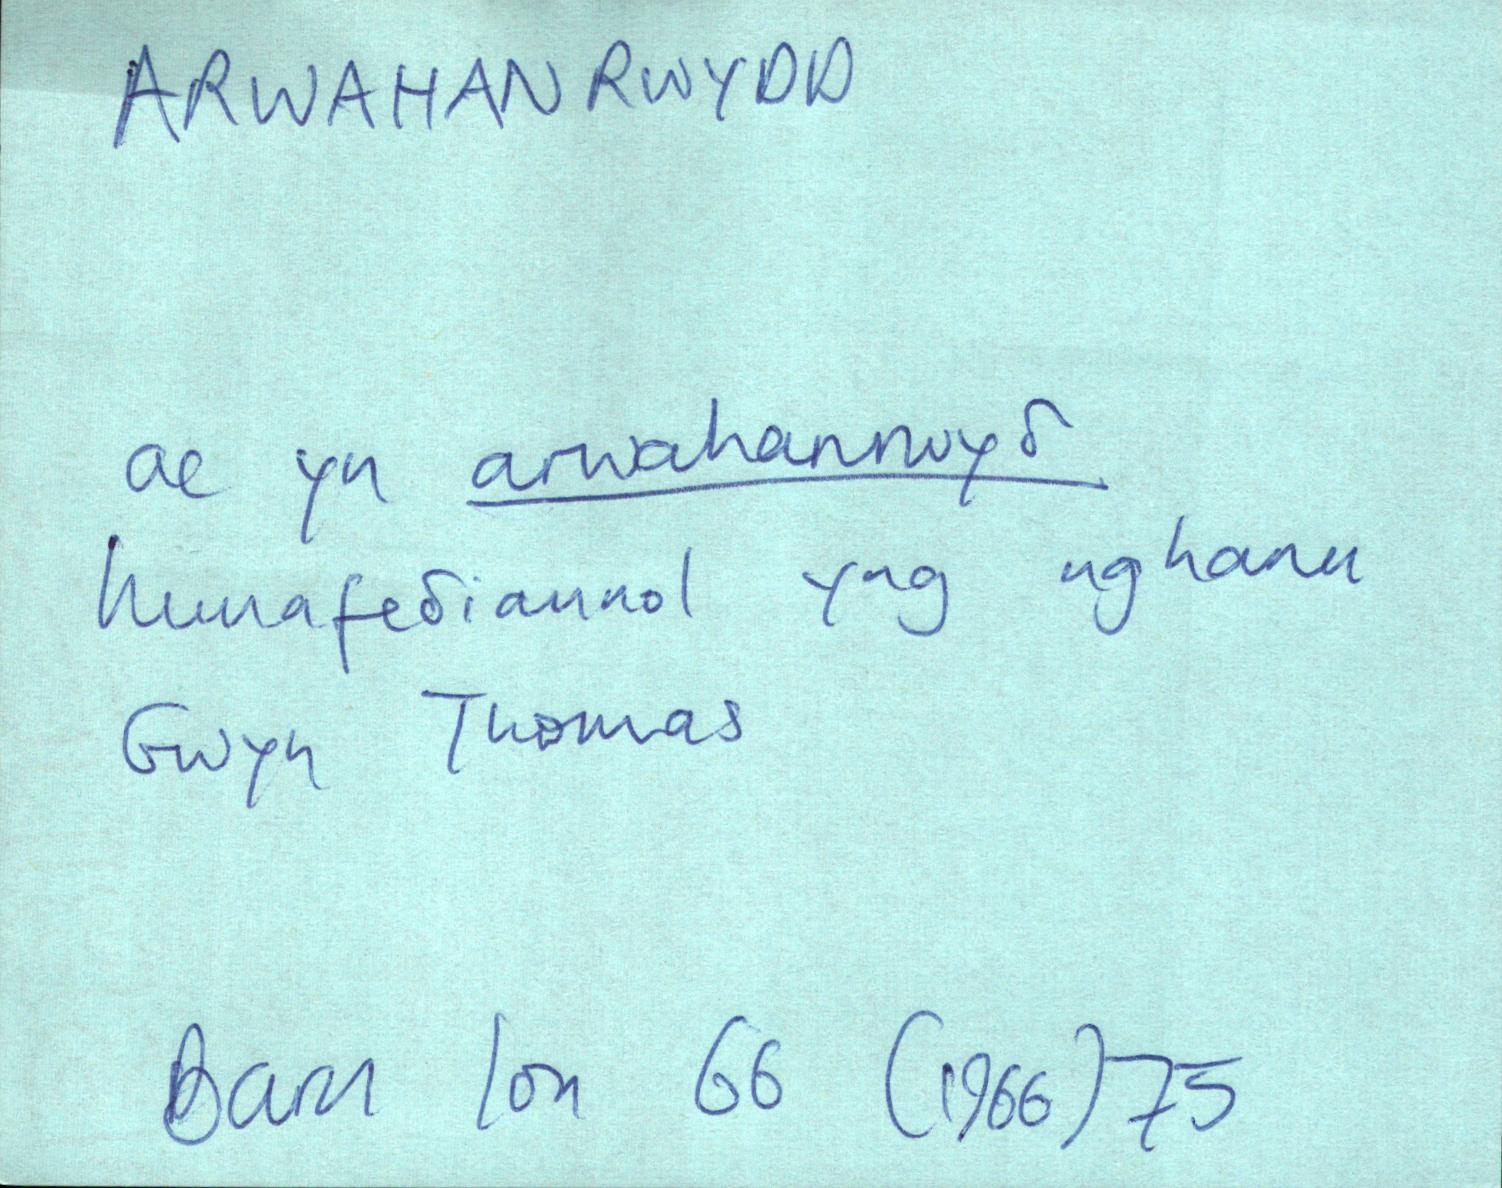 ARWAHANRWYDD
ae yn arwahanrwyδ
hunafeδiannol yng nghanu
Gwyn Thomas
Barn Ion 66 (1966) 75